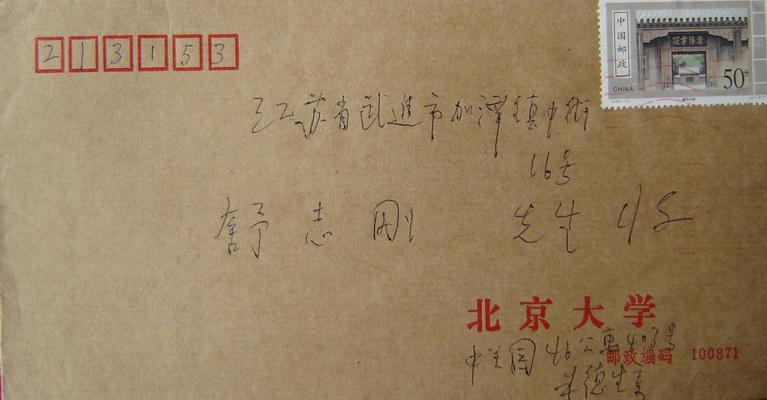 213153
中国邮政
CHINA
50分
江苏省武进市加泽镇中街
16号
舒志刚 先生 收
北京大学
中关园46公寓403号
邮政编码 100871